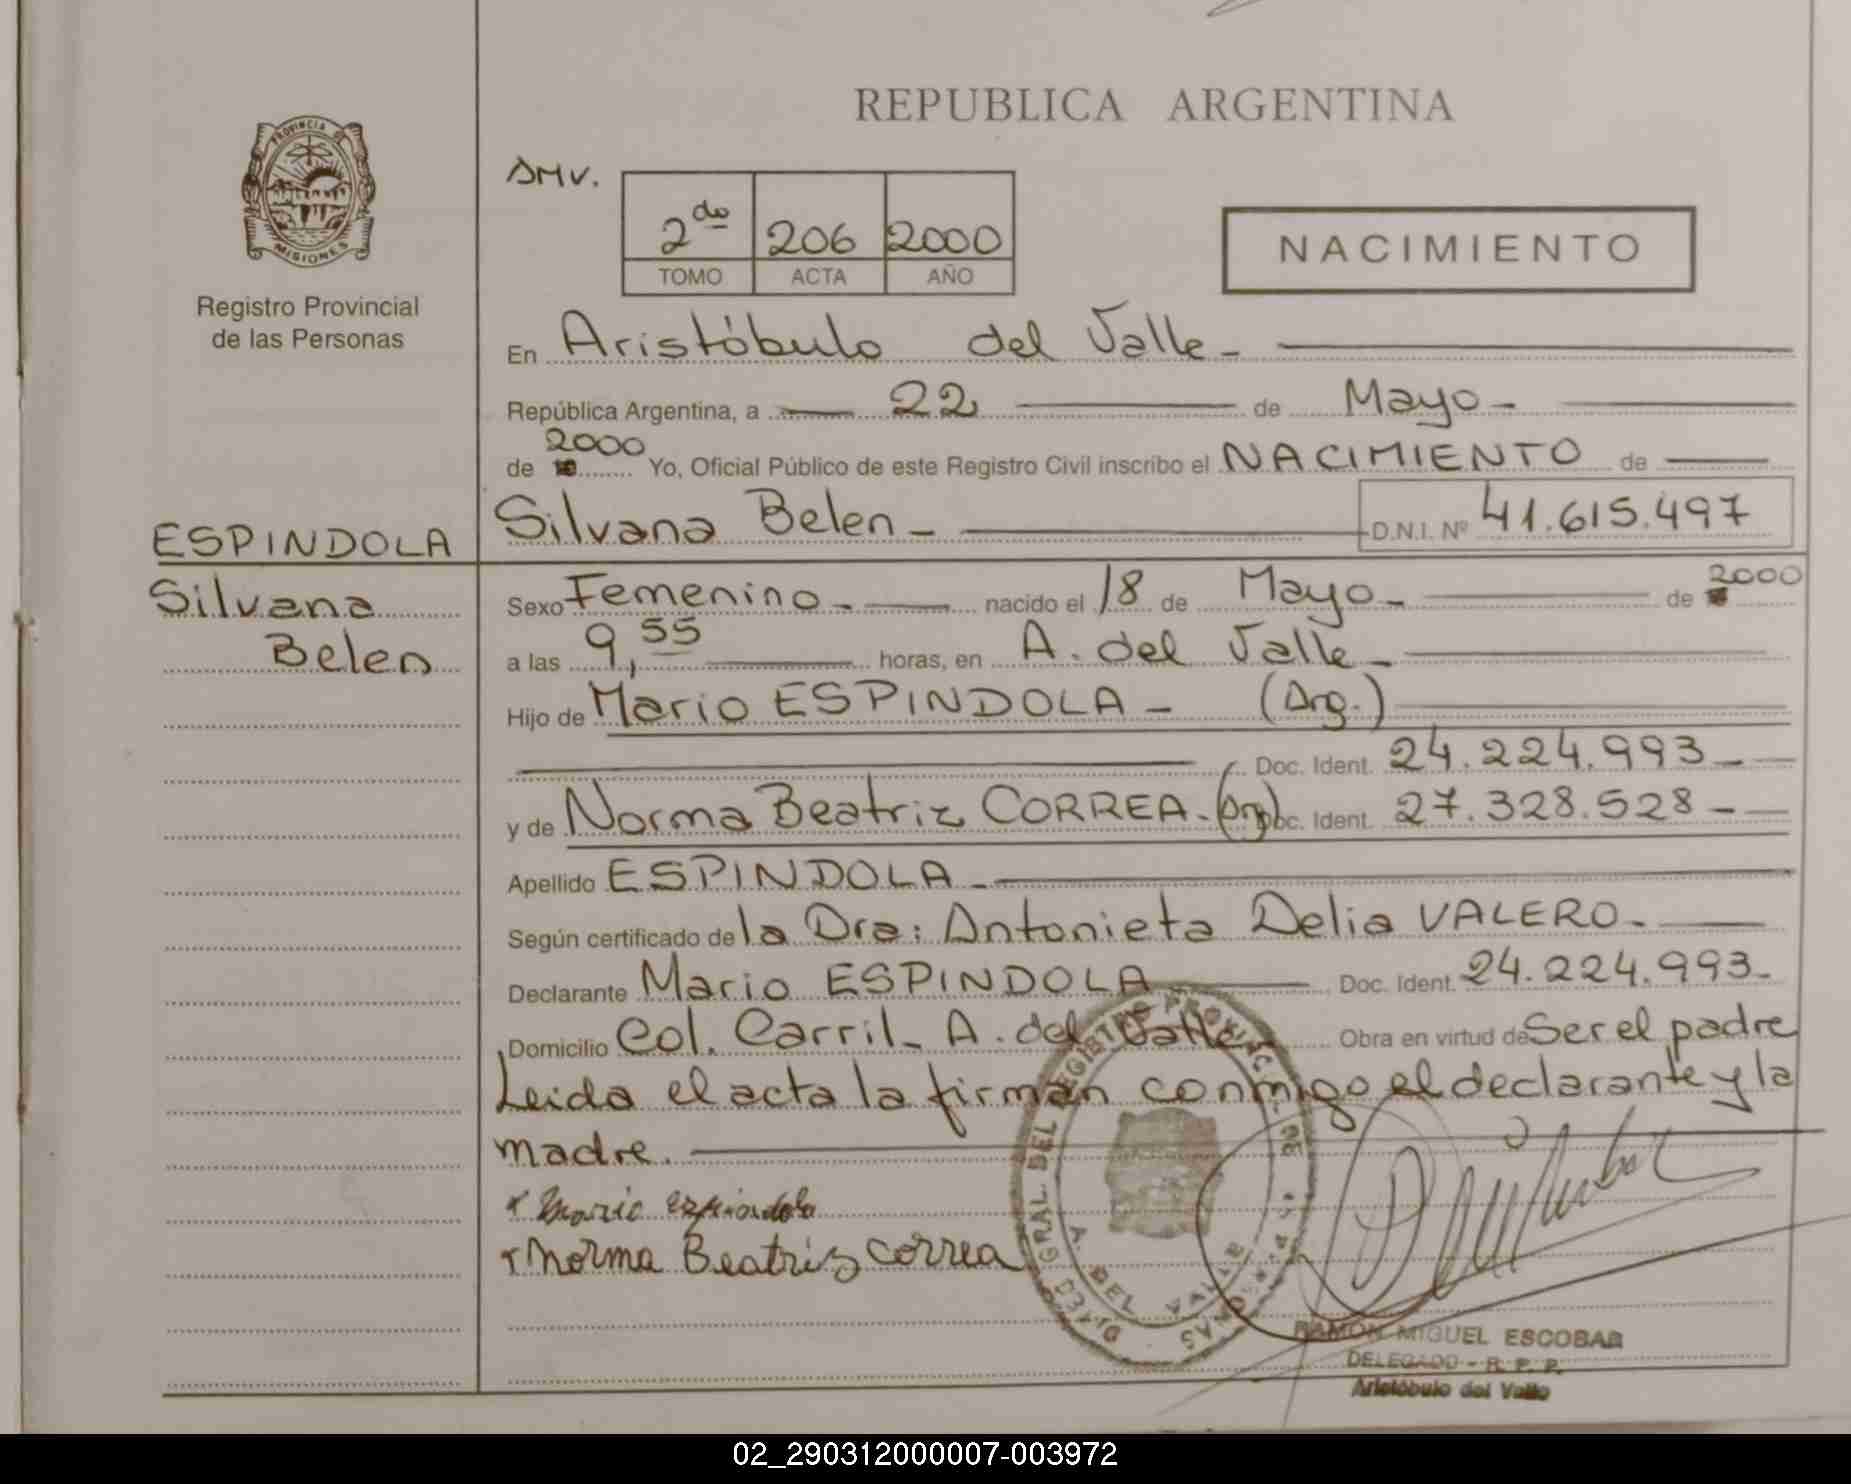 REPUBLICA ARGENTINA
PROVINCIA DE MISIONES
Registro Provincial
de las Personas
SMV.
2do 206 2000
TOMO ACTA AÑO
NACIMIENTO
En Aristóbulo del Valle-
República Argentina, a 22 de Mayo-
de 2000 Yo, Oficial Público de este Registro Civil inscribo el NACIMIENTO de
Silvana Belen- D.N.I. Nº 41.615.497
ESPINDOLA
Silvana
Belen
Sexo Femenino- nacido el 18 de Mayo- de 2000
a las 9,55 horas, en A. del Valle-
Hijo de Mario ESPINDOLA- (Arg.)
Doc. Ident. 24.224.993-
y de Norma Beatriz CORREA.(Arg) Doc. Ident. 27.328.528-
Apellido ESPINDOLA-
Según certificado de la Dra: Antonieta Delia VALERO-
Declarante Mario ESPINDOLA Doc. Ident. 24.224.993-
Domicilio Col. Carril- A. del Valle- Obra en virtud de Ser el padre
Leida el acta la firman conmigo el declarante y la
madre.
x Mario espindola
x Norma Beatriz correa
DIREC. GRAL. DEL REGISTRO PROVINC. DE LAS PERSONAS
A. DEL VALLE
RAMON MIGUEL ESCOBAR
DELEGADO - R. P. P.
Aristóbulo del Valle
02_290312000007-003972